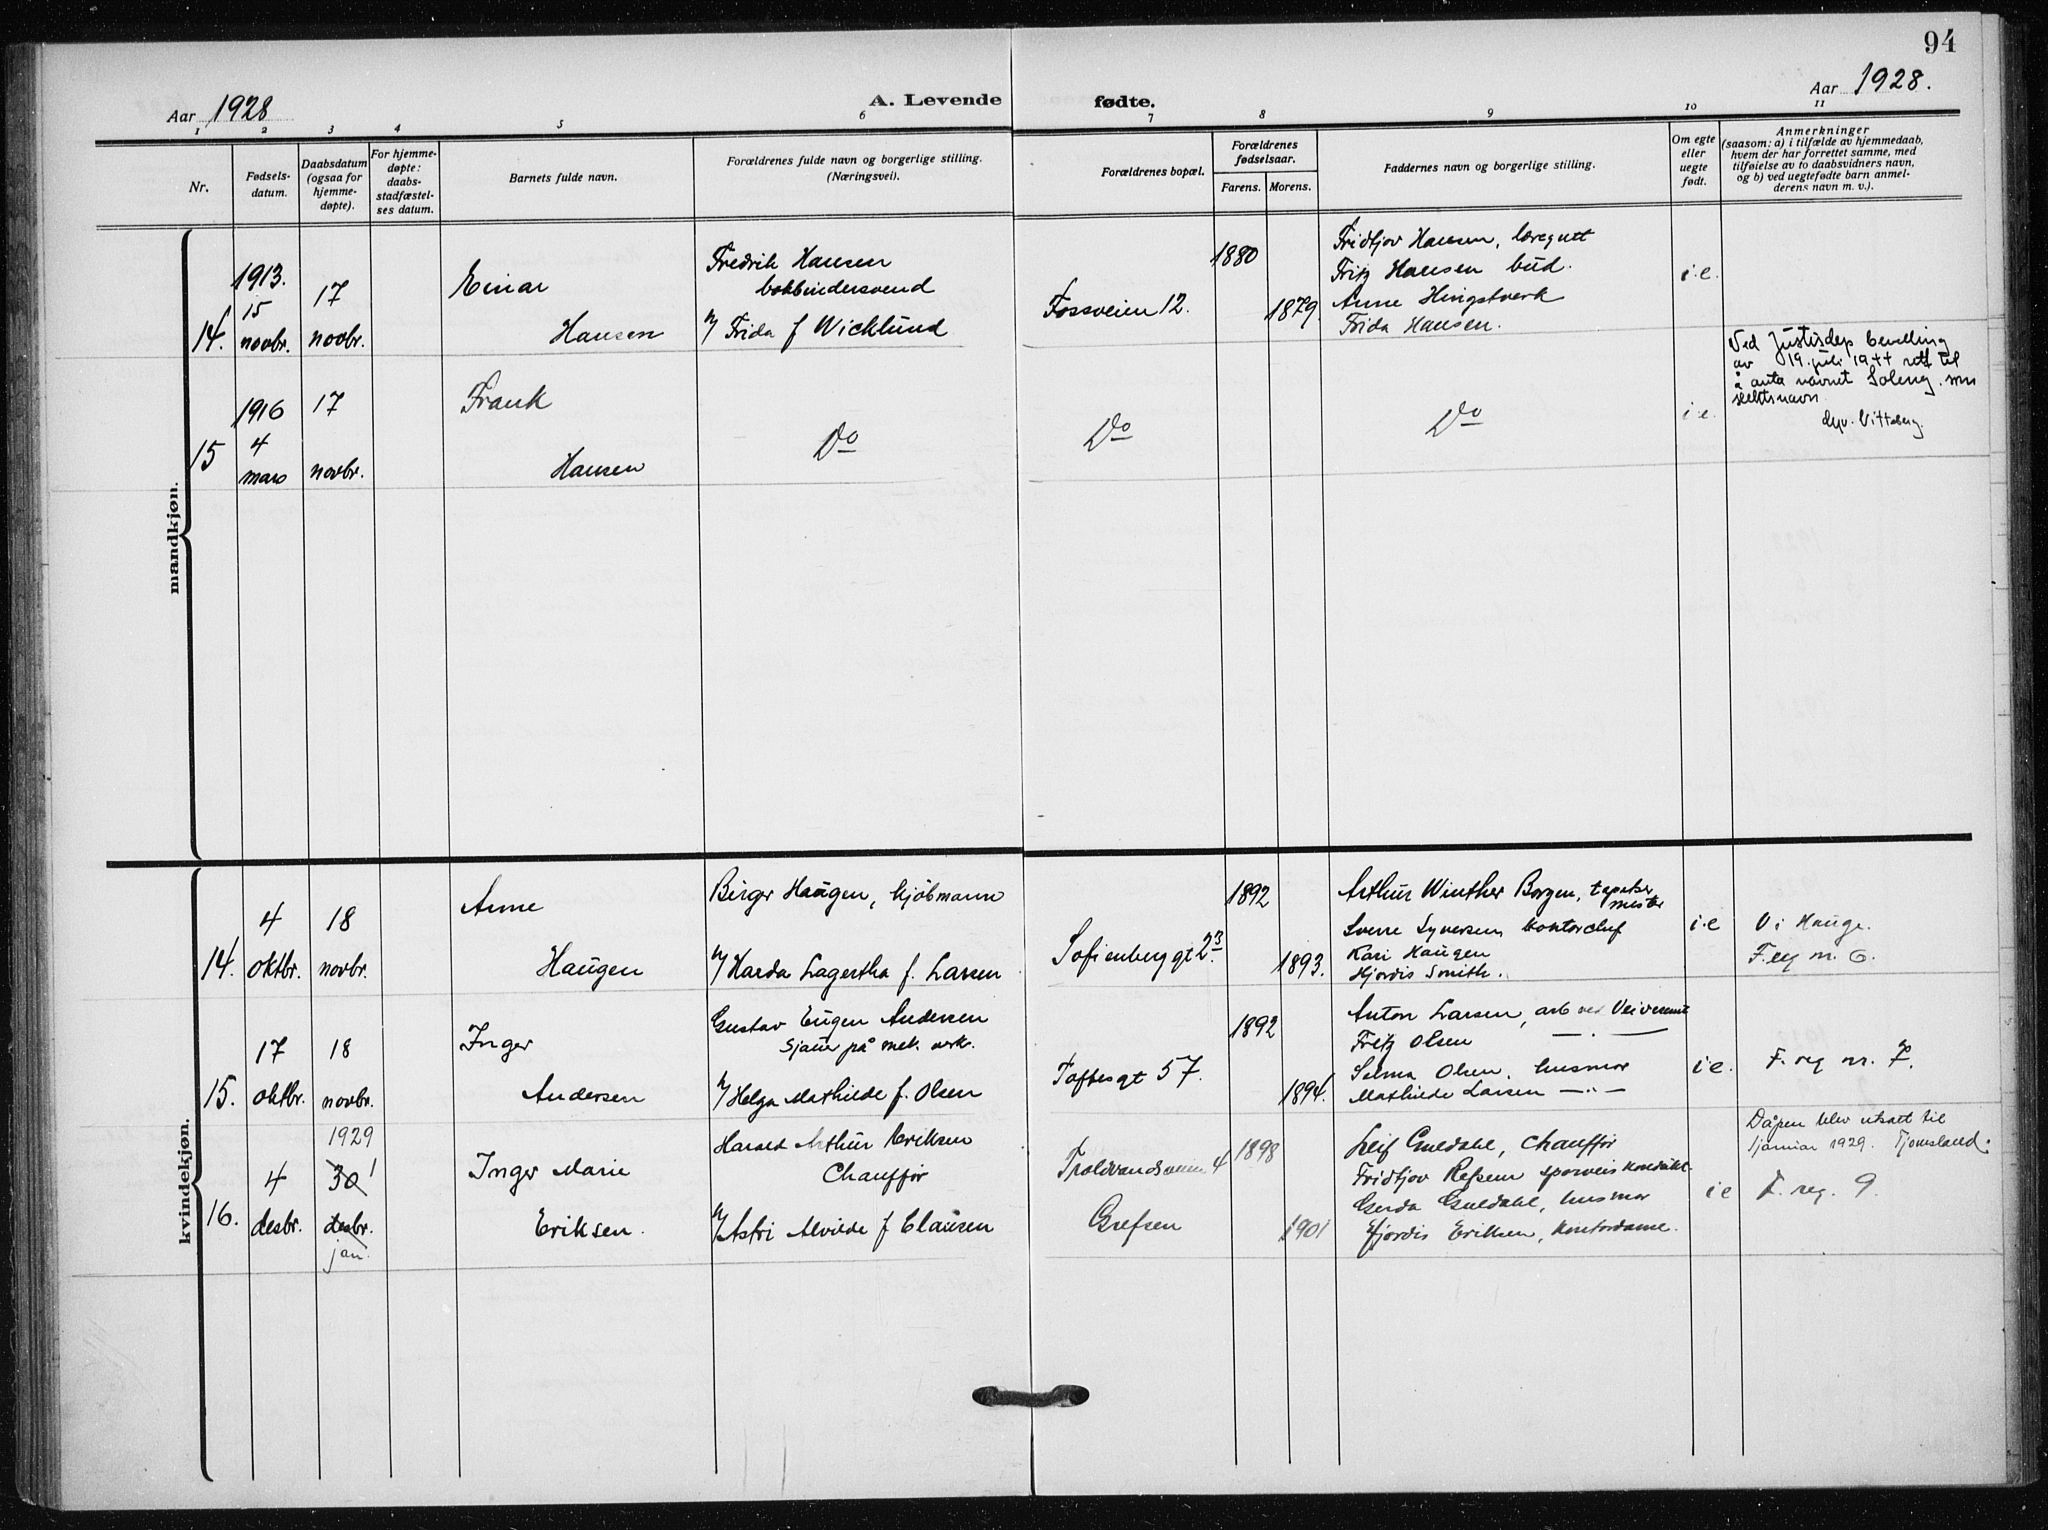 94
Aar 1928
A. Levende fødte.
Aar 1928.
1 2 3 4 5 6 7 8 9 10 11
Nr.
Fødsels-
datum.
Daabsdatum
(ogsaa for
hjemme-
døpte).
For hjemme-
døpte:
daabs-
stadfæstel-
ses datum.
Barnets fulde navn.
Forældrenes fulde navn og borgerlige stilling.
(Næringsvei).
Forældrenes bopæl.
Forældrenes
fødselsaar.
Farens. Morens.
Faddernes navn og borgerlige stilling.
Om egte
eller
uegte
født.
Anmerkninger
(saasom: a) i tilfælde av hjemmedaab,
hvem der har forrettet samme, med
tilføielse av to daabsvidners navn,
og b) ved uegtefødte barn anmel-
derens navn m. v.).
mandkjøn.
14.
1913.
15
novbr.
17
novbr.
Einar
Hansen
Fredrik Hansen
bokbindersvend
Frida f Wicklund
Fossveien 12.
1880
1879.
Fridtjov Hansen, læregutt
Fritz Hansen bud.
Anne Hingstverk
Frida Hansen.
i.e.
15
1916
4
mars
17
novbr.
Frank
Hansen
Do
Do
Do
i.e.
Ved Justisdep bevilling
av 19. juli 1944 rett til
å anta navnet Soleng som
slektsnavn
kvindekjøn.
14.
4
oktbr.
18
novbr.
Anne
Haugen
Birger Haugen, kjøbmann
Harda Lagertha f. Larsen
Sofienberggt 23.
1892
1893.
Arthur Winther Borgen, tapetser
mester
Sverre Syversen kontorchef
Kari Haugen
Hjördis Smith.
i.e
Vi Hauge.
F. reg nr. 6.
15.
17
oktbr.
18
novbr.
Inger
Andersen
Gustav Eugen Andersen
Sjauer på mek. verk.
Helga Mathilde f. Olsen
Toftesgt 57.
1892
1894.
Anton Larsen, arb ved Veivesenet
Fritz Olsen — . —
Selma Olsen, husmor
Mathilde Larsen — . —
i e.
F. reg nr. 7.
16.
4
desbr.
1929
30 1
desbr.
jan.
Inger Marie
Eriksen.
Harald Arthur Eriksen
Chauffør
Astri Alvilde f Clausen
Troldvandsveien 4
Grefsen
1898
1901
Leif Guldahl, Chauffør
Fridtjov Refsem sporveiskonduktør
Gerda Guldahl, husmor
Hjördis Eriksen, kontordame.
i e
Dåpen blev utsatt til
1 januar 1929. Tjomsland.
F. reg. 9.